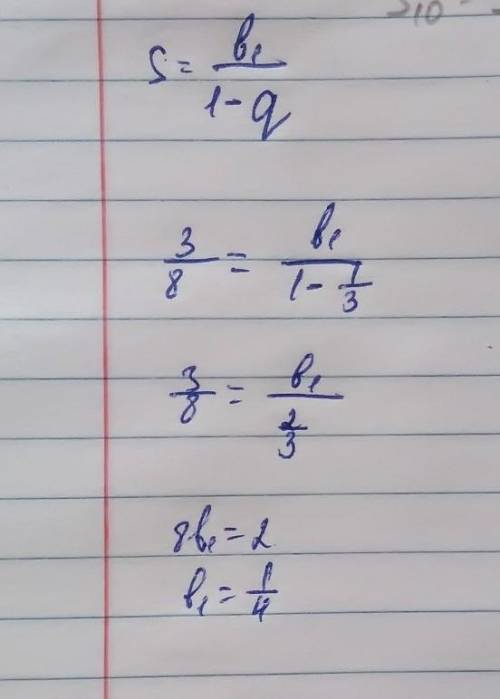 S₁₀
S = b₁ / (1 - q)
3/8 = b₁ / (1 - 1/3)
3/8 = b₁ / (2/3)
8b₁ = 2
b₁ = 1/4